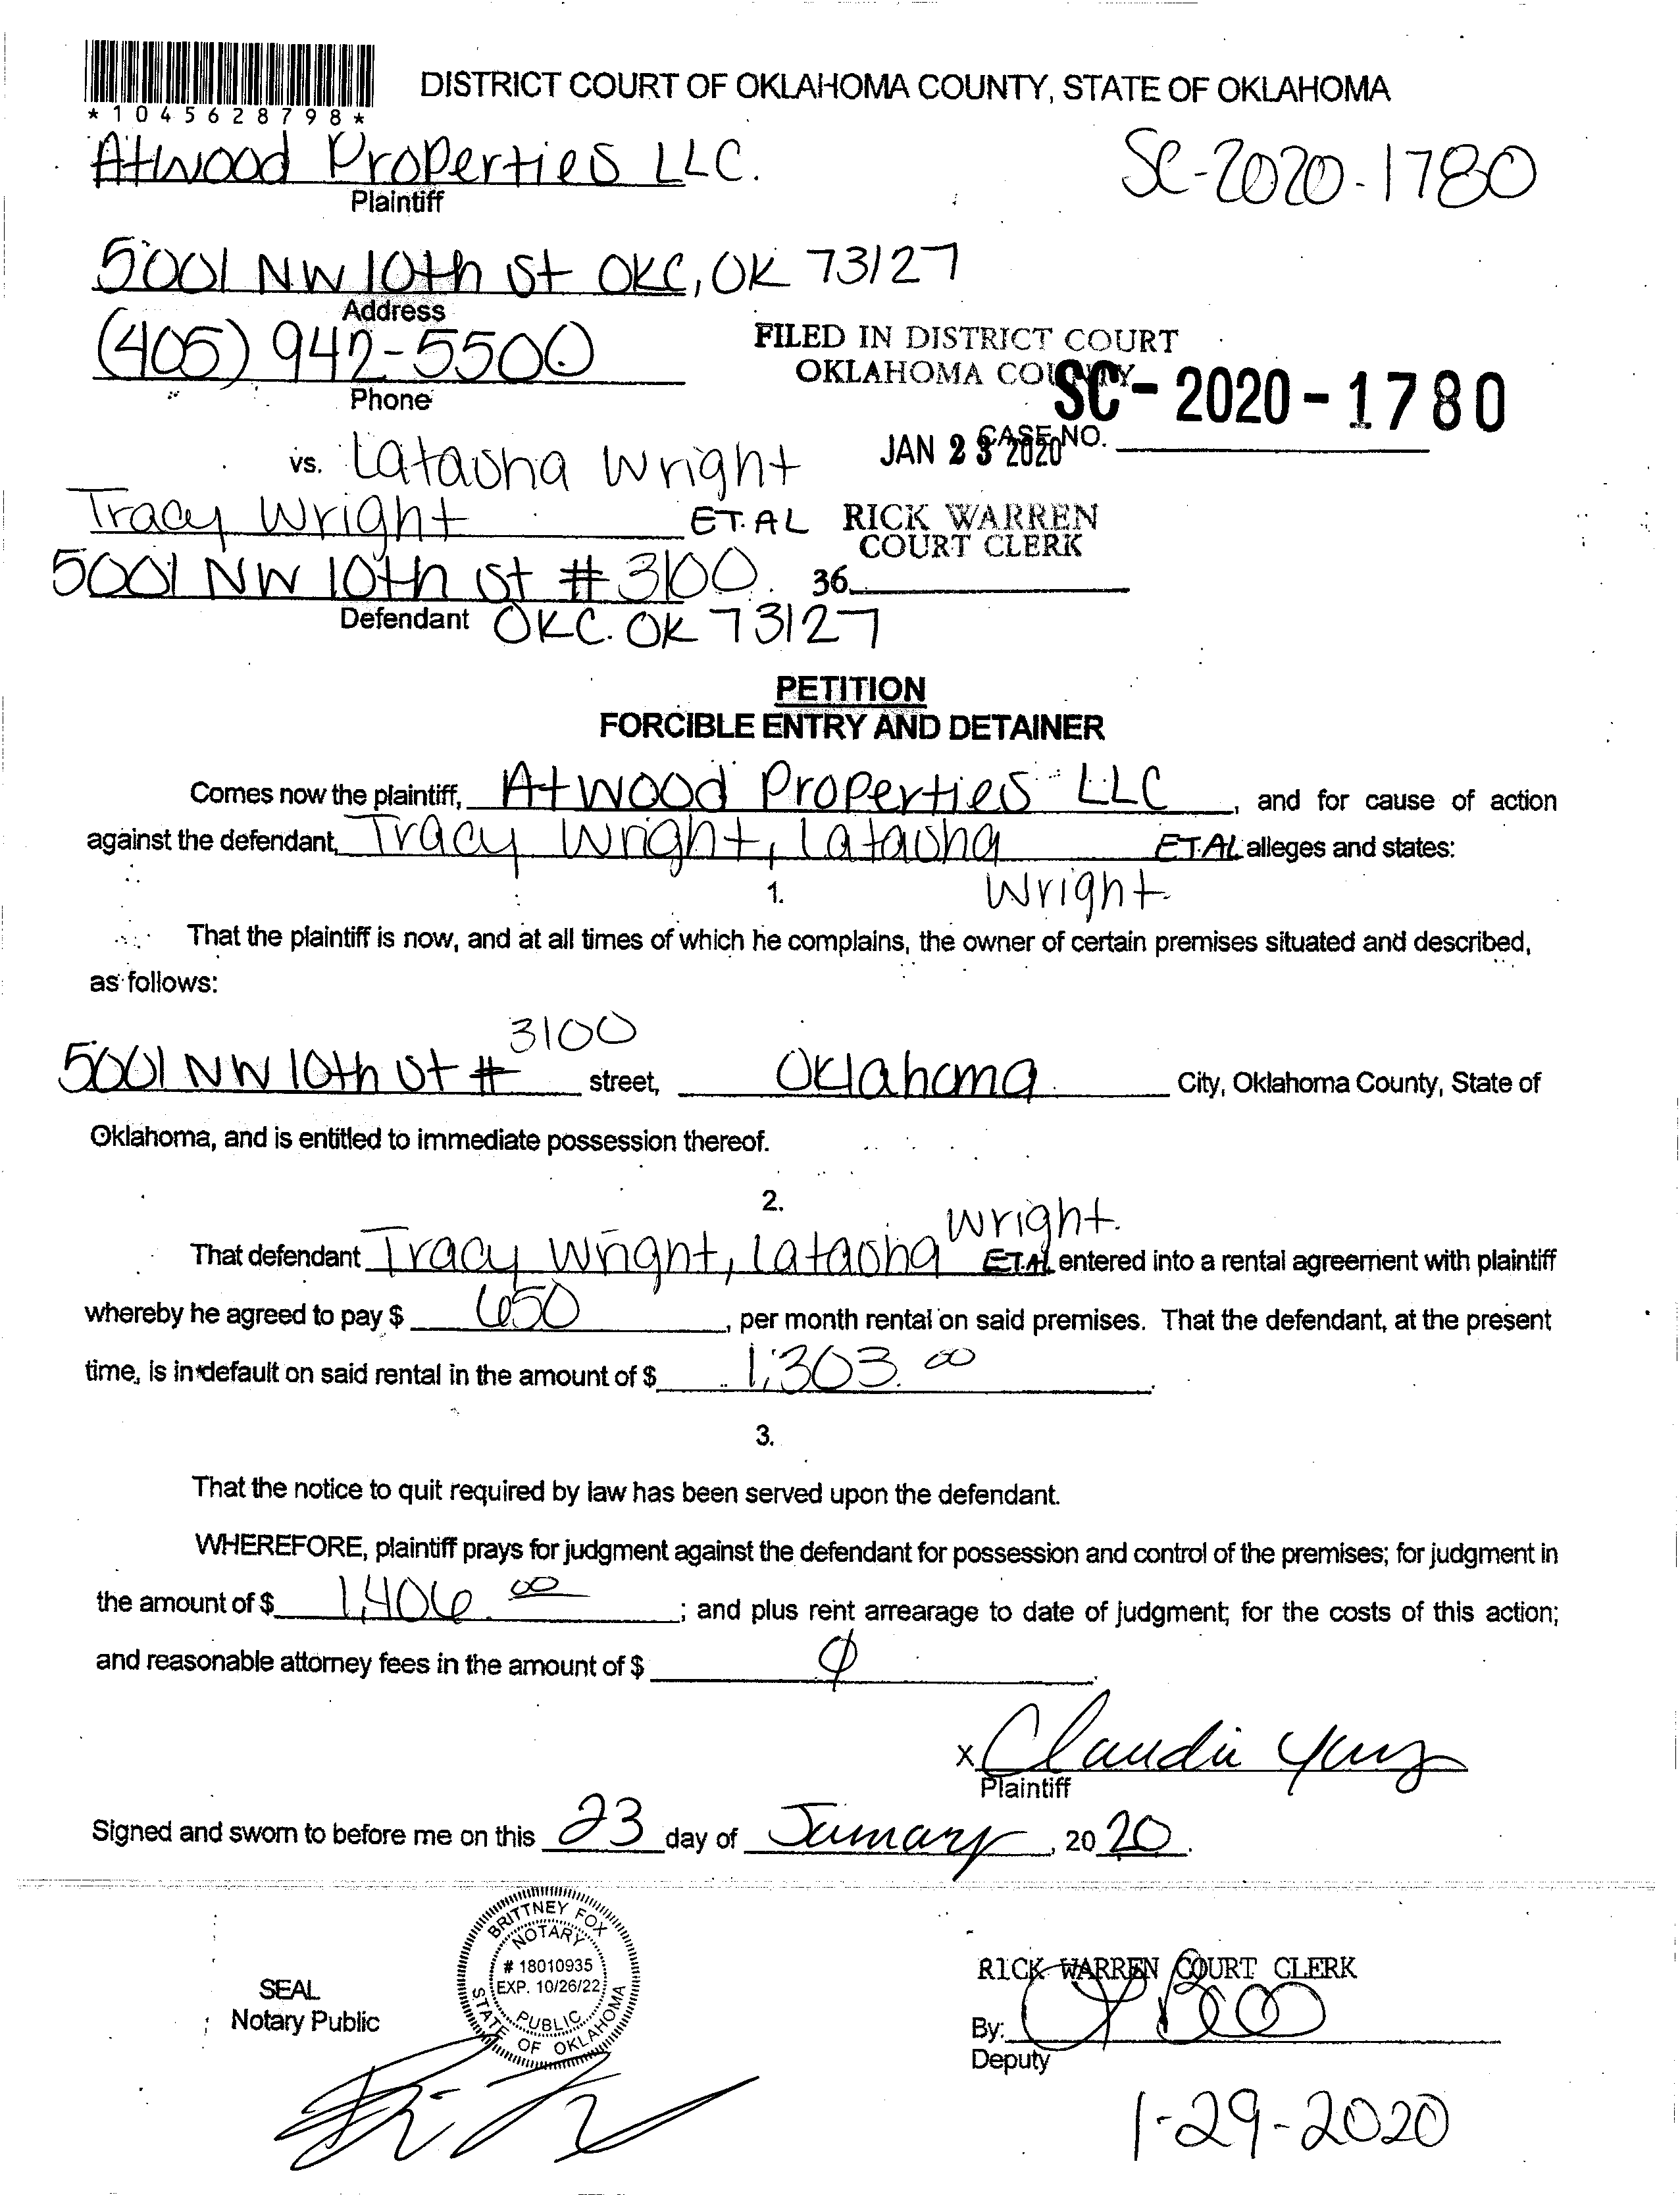 DISTRICT COURT OF OKLAHOMA COUNTY, STATE OF OKLAHOMA
*1045628798*
Atwood Properties LLC.
SC-2020-1780
Plaintiff
5001 NW 10th St OKC, OK 73127
Address
(405) 942-5500
Phone
FILED IN DISTRICT COURT
OKLAHOMA COUNTY
SC-2020-1780
JAN 23 2020
CASE NO.
vs. Latasha Wright
Tracy Wright ET.AL
RICK WARREN
COURT CLERK
5001 NW 10th St # 3100
36
Defendant OKC. OK 73127
PETITION
FORCIBLE ENTRY AND DETAINER
Comes now the plaintiff, Atwood Properties LLC, and for cause of action
against the defendant, Tracy Wright, Latasha ET.AL alleges and states:
Wright
1.
That the plaintiff is now, and at all times of which he complains, the owner of certain premises situated and described,
as follows:
3100
5001 NW 10th St # street, Oklahoma City, Oklahoma County, State of
Oklahoma, and is entitled to immediate possession thereof.
2.
Wright.
That defendant Tracy Wright, Latasha ET.AL entered into a rental agreement with plaintiff
whereby he agreed to pay $ 650, per month rental on said premises. That the defendant, at the present
time, is in default on said rental in the amount of $ 1,303.00.
3.
That the notice to quit required by law has been served upon the defendant.
WHEREFORE, plaintiff prays for judgment against the defendant for possession and control of the premises; for judgment in
the amount of $ 1,406.00; and plus rent arrearage to date of judgment; for the costs of this action;
and reasonable attorney fees in the amount of $ 0.
x Claudia
Plaintiff
Signed and sworn to before me on this 23 day of January, 2020.
BRITTNEY FOX
NOTARY
# 18010935
EXP. 10/26/22
PUBLIC
STATE OF OKLAHOMA
SEAL
Notary Public
RICK WARREN COURT CLERK
By:
Deputy
1-29-2020